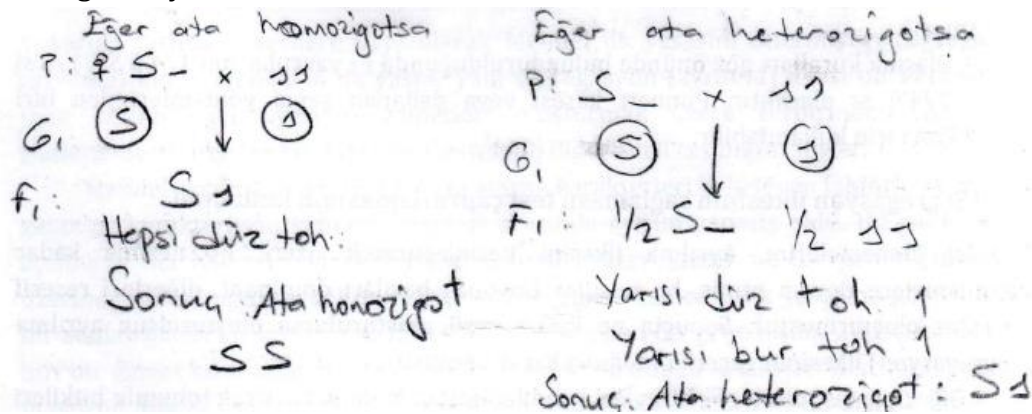 Eğer ata homozigotsa
P: ♀ S- × ss
G, (S) (s)
F, Ss
Hepsi düz toh.
Sonuç: Ata homozigot
SS
Eğer ata heterozigotsa
P: S- × ss
G, (S) (s)
F, 1/2 S- 1/2 ss
Yarısı düz toh
Yarısı bur toh
Sonuç, Ata heterozigot: Ss